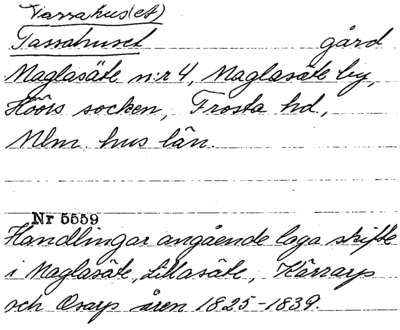 Tassahus(et)
Tassahuset gård
Maglasäte n:r 4, Maglasäte by,
Höörs socken, Frosta hd.,
Mlm. hus län.
Nr 5559
Handlingar angående laga skifte
i Maglasäte, Lillasäte, Kärrarp
och Osarp åren 1825-1839.